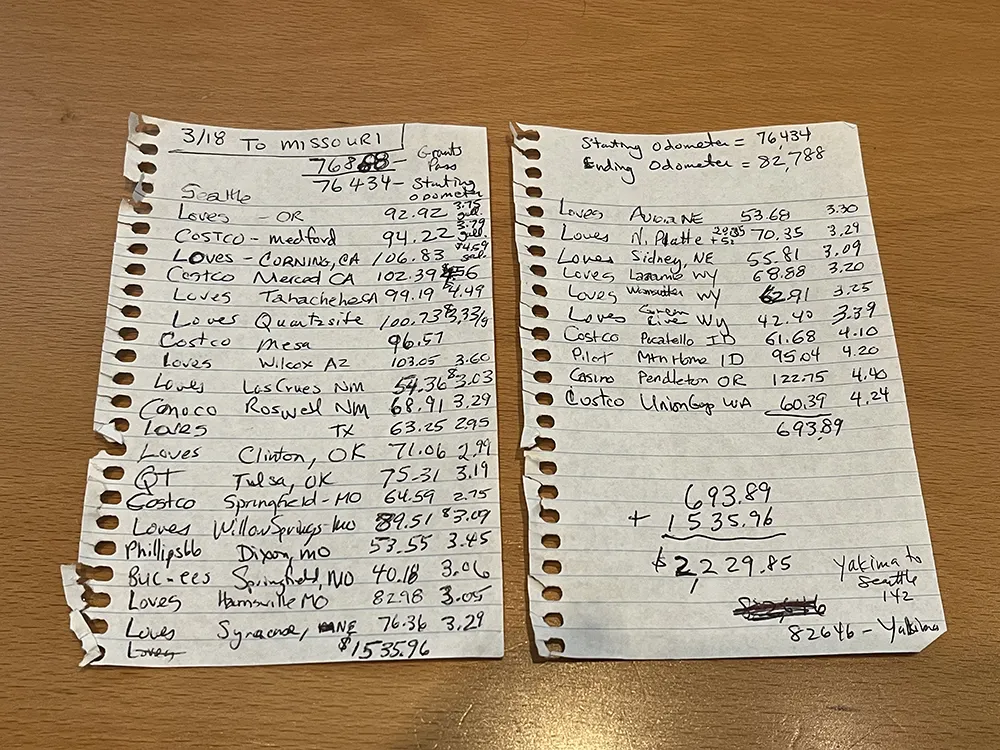 3/18 TO MISSOURI
76868 - Grants Pass
76434 - Starting odometer
Seattle
Loves - OR 92.92 3.75 gal.
COSTCO - medford 94.22 3.79 gal.
LOVES - CORNING, CA 106.83 $4.59 gal.
Costco Merced CA 102.39 4.56
Loves Tahachehe CA 99.19 $4.49
Loves Quartzsite 100.73 $3.33/g
Costco Mesa 96.57
Loves Wilcox AZ 103.05 3.60
Loves Las Crues NM 54.36 $3.03
Conoco Roswell NM 68.91 3.29
Loves TX 63.25 2.95
Loves Clinton, OK 71.06 2.99
QT Tulsa, OK 75.31 3.19
Costco Springfield - MO 64.59 2.75
Loves Willow Springs - MO 89.51 $3.09
Phillips66 Dixon, MO 53.55 3.45
BUC-ees Springfield, MO 40.18 3.06
Loves Harrisville MO 82.98 3.05
Loves Syracuse, NE 76.36 3.29
Loves $1535.96
Starting Odometer = 76,434
Ending Odometer = 82,788
Loves Aurora NE 53.68 3.30
Loves N. Platte 70.35 3.29
Loves Sidney, NE 55.81 3.09
Loves Laramie WY 68.88 3.20
Loves WY 62.91 3.25
Loves Green WY 42.40 3.39
Costco Pocatello ID 61.68 4.10
Pilot Mtn Home ID 95.04 4.20
Casino Pendleton OR 122.75 4.40
Costco Union Gap WA 60.39 4.24
693.89
693.89
+ 1535.96
$2,229.85
Yakima to
Seattle
142
82646 - Yakima